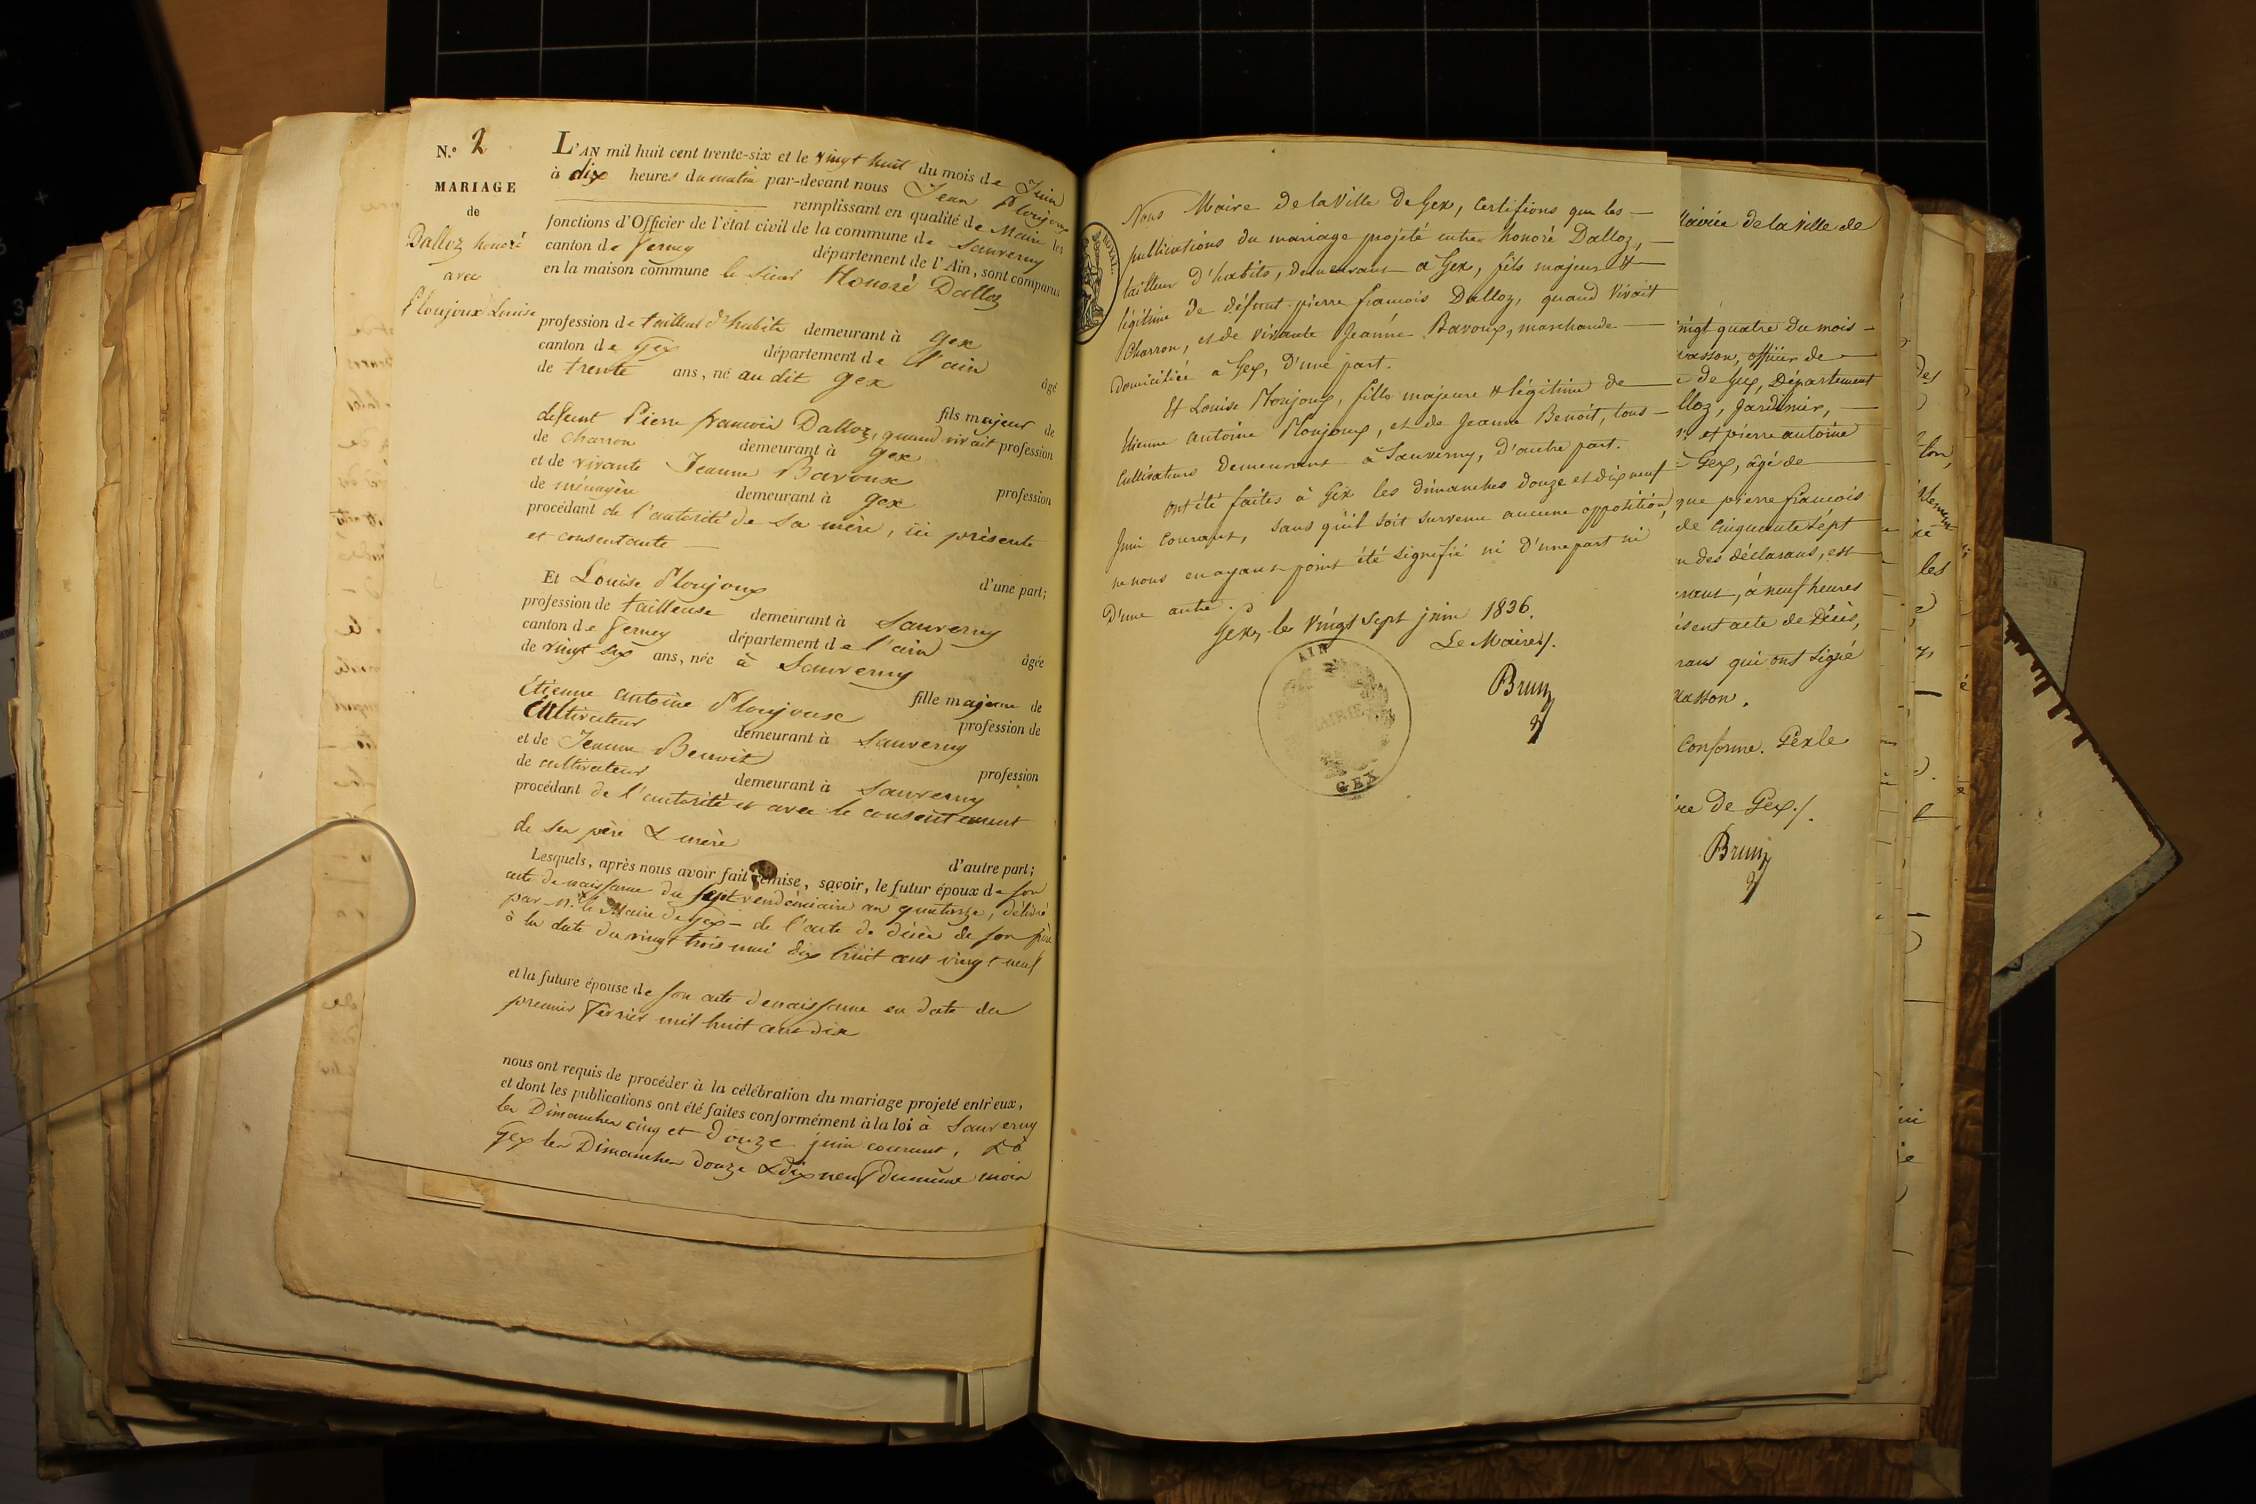 N.º 2
MARIAGE
de
Dalloz honoré
avec
Ploujoux Louise
L'AN mil huit cent trente-six et le vingt huit du mois de Juin
à dix heures du matin par-devant nous Jean Ploujoux
remplissant en qualité de Maire les
fonctions d'Officier de l'état civil de la commune de Sauverny
canton de Ferney département de l'Ain, sont comparus
en la maison commune le Sieur Honoré Dalloz
profession de tailleur d'habits demeurant à Gex
canton de Gex département de l'ain
de trente ans, né au dit Gex âgé
fils majeur de
defunt Pierre françois Dalloz, quand vivait profession
de charron demeurant à Gex
et de vivante Jeanne Bavoux profession
de ménagère demeurant à Gex
procédant de l'autorité de sa mère, ici présente
et consentante
d'une part;
Et Louise Ploujoux
profession de tailleuse demeurant à Sauverny
canton de Ferney département de l'ain
de vingt six ans, née à Sauverny âgée
fille majeure de
Etienne antoine Ploujoux profession de
cultivateur demeurant à Sauverny
et de Jeanne Benoit profession
de cultivateur demeurant à Sauverny
procédant de l'autorité et avec le consentement
de ses père & mère
d'autre part;
Lesquels, après nous avoir fait remise, savoir, le futur époux de son
acte de naissance du sept vendémiaire an quatorze, délivré
par Mr. le Maire de Gex – de l'acte de décès de son père
à la date du vingt trois mai dix huit cent vingt neuf
et la future épouse de son acte de naissance en date du
premier Février mil huit cent dix
nous ont requis de procéder à la célébration du mariage projeté entr'eux,
et dont les publications ont été faites conformément à la loi à Sauverny
les Dimanches cinq et douze juin courant, & à
Gex les Dimanches douze & dix neuf du même mois
ROYAL
Nous Maire de la Ville de Gex, Certifions que les
publications du mariage projeté entre honoré Dalloz,
tailleur d'habits, demeurant à Gex, fils majeur &
légitime de défunt pierre françois Dalloz, quand vivait
Charron, et de vivante Jeanne Bavoux, marchande
domiciliée à Gex, D'une part.
Et Louise Ploujoux, fille majeure & légitime de
Etienne Antoine Ploujoux, et de Jeanne Benoît, tous
Cultivateurs Demeurant à Sauverny, d'autre part.
ont été faites à Gex les dimanches douze et dix neuf
Juin Courant, sans qu'il soit survenu aucune opposition,
ne nous en ayant point été signifié ni D'une part ni
D'une autre.
Gex, le vingt sept juin 1836.
Le Maire
Brun
AIN
MAIRIE
GEX
Mairie de la Ville de
vingt quatre du mois
vasson, officier de
de Gex, Département
lloz, Jardinier,
et pierre antoine
Gex, âgé de
que pierre françois
de Cinquante sept
des déclarans, est
à neuf heures
présent acte de Décès,
qui ont signé
vasson.
Conforme. Gex le
re De Gex
Brun
des
les